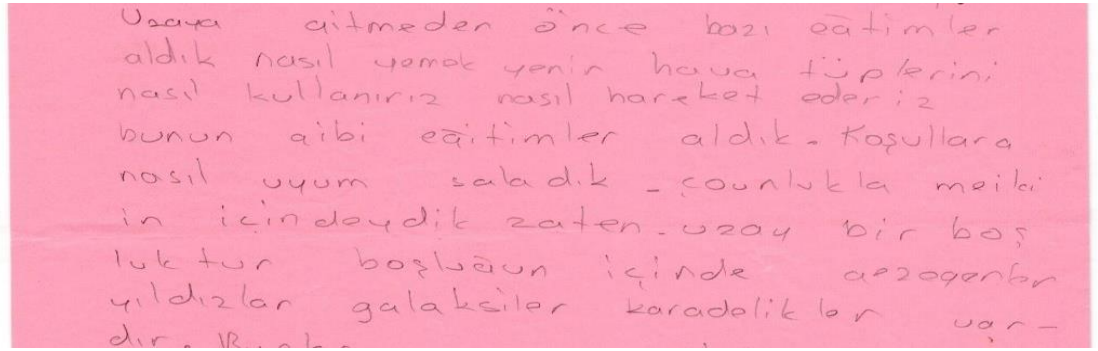 Uzaya gitmeden önce bazı eğtimler
aldık nasıl yemek yenir hava tüplerini
nasıl kullanırız nasıl hareket ederiz
bunun gibi eğitimler aldık. Koşullara
nasıl uyum saladık - çounlukla meiki
in içindeydik zaten. uzay bir boş
luktur boşluğun içinde gezegenler
yıldızlar galaksiler karadelikler var-
dır.